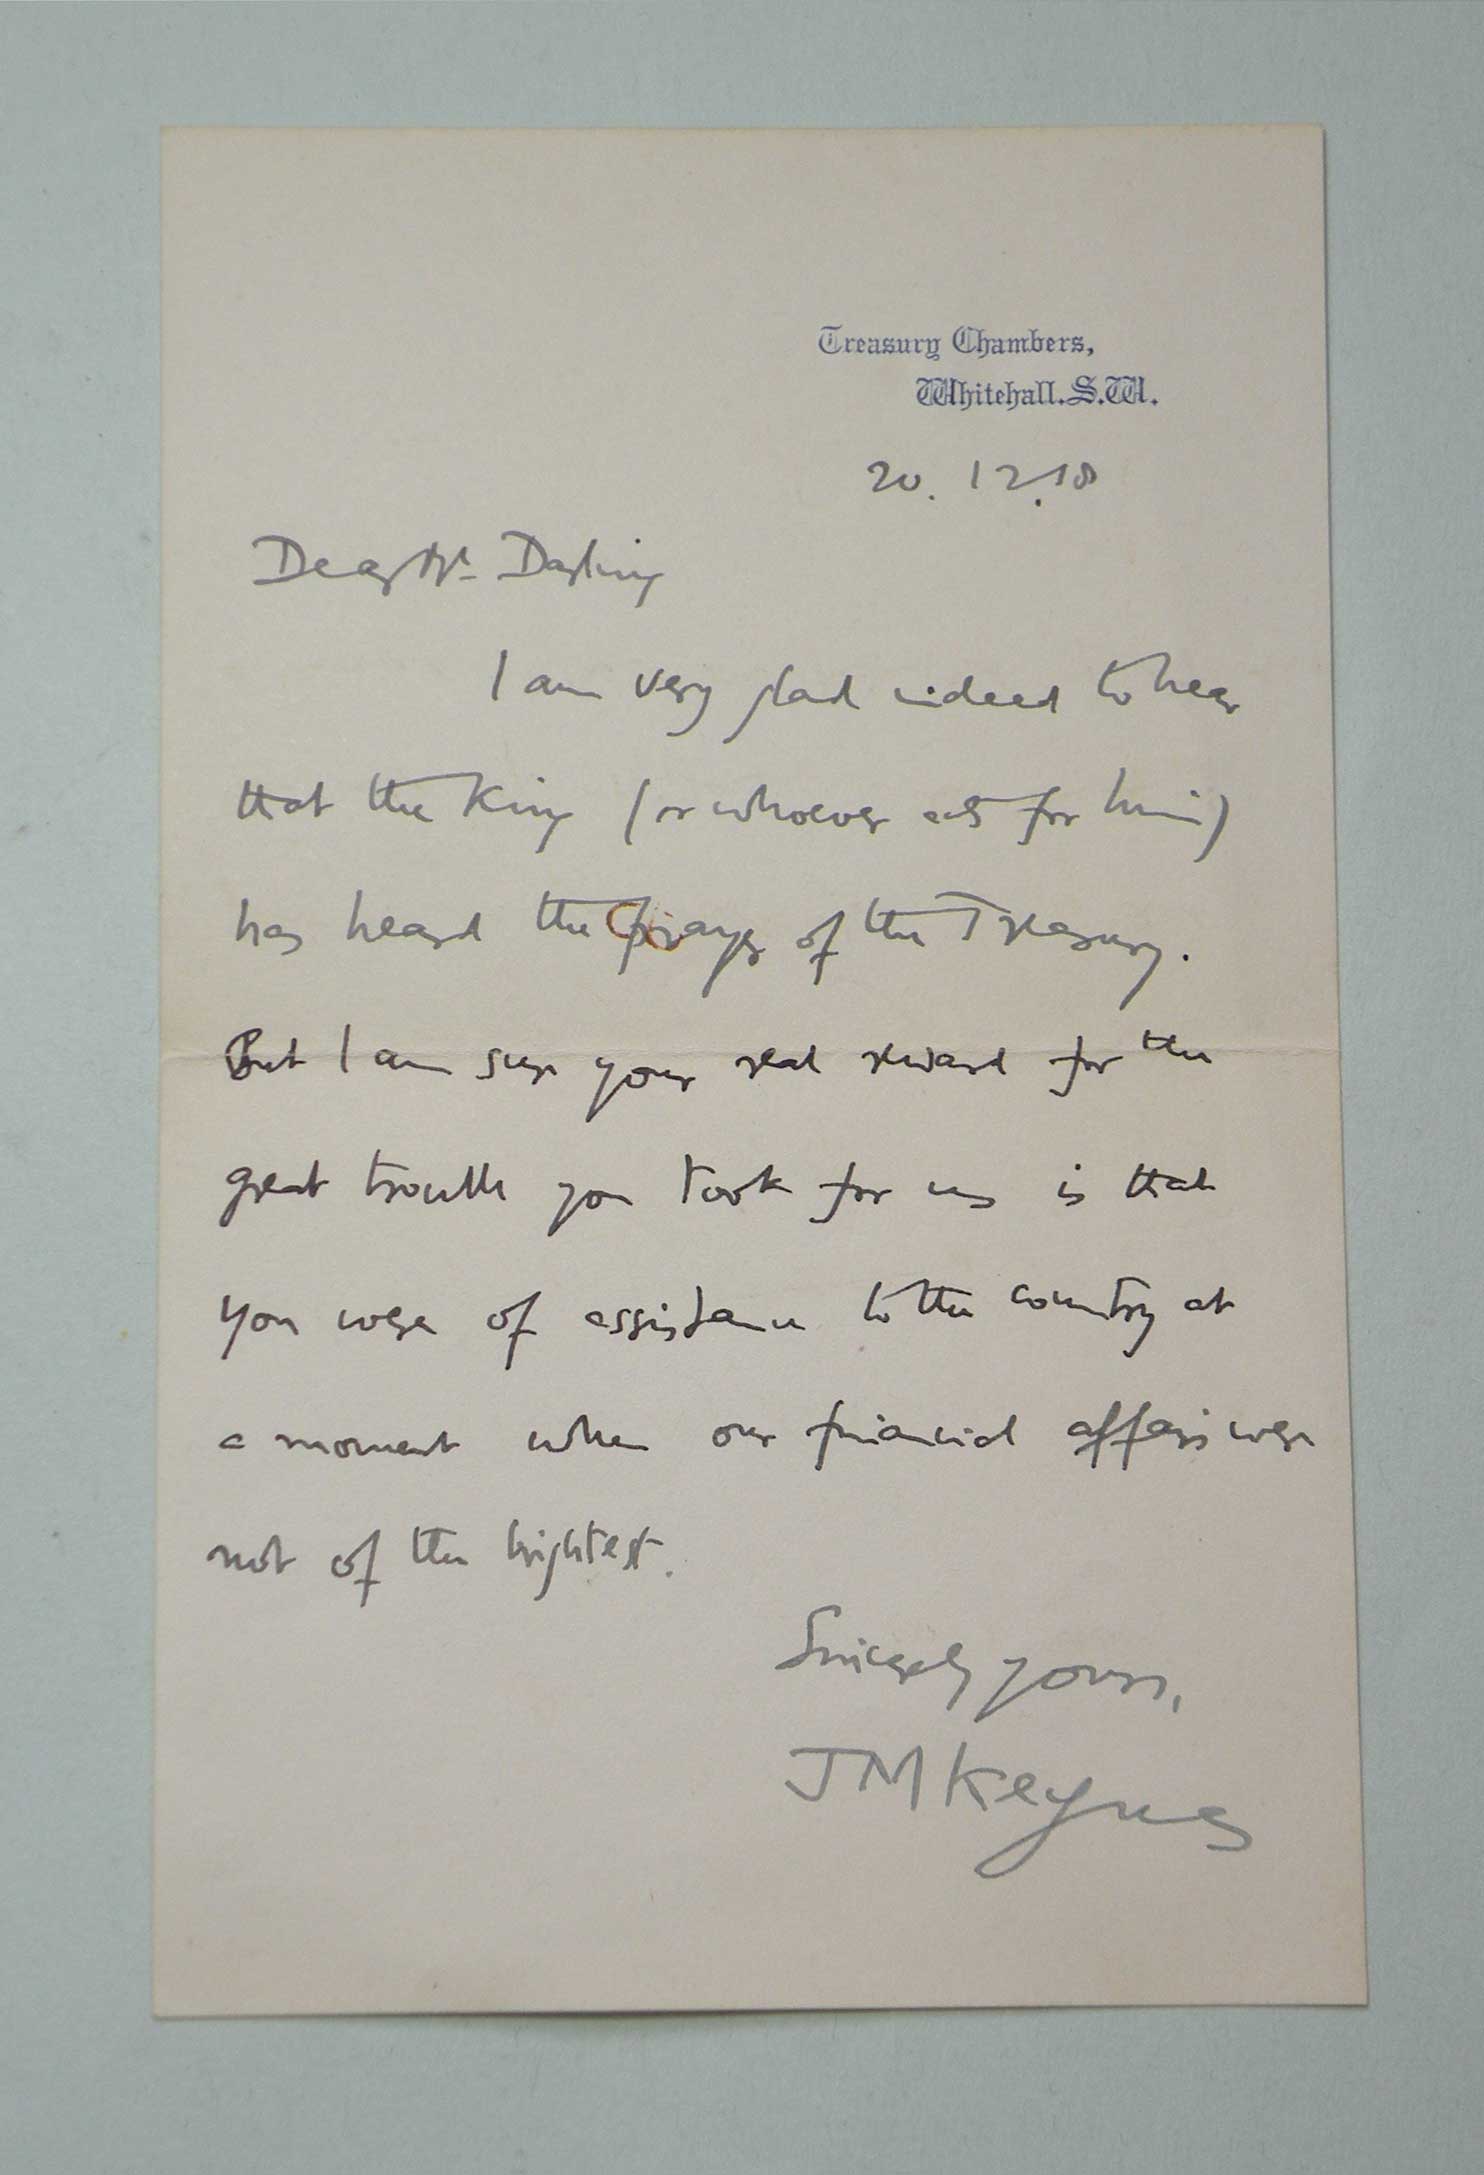 Treasury Chambers,
Whitehall. S.W.
20. 12. 18
Dear Mr. Darling
I am very glad indeed to hear
that the King (or whoever acts for him)
has heard the prayer of the Treasury.
But I am sure your real reward for the
great trouble you took for us is that
you were of assistance to the country at
a moment when our financial affairs were
not of the brightest.
Sincerely yours,
JMKeynes